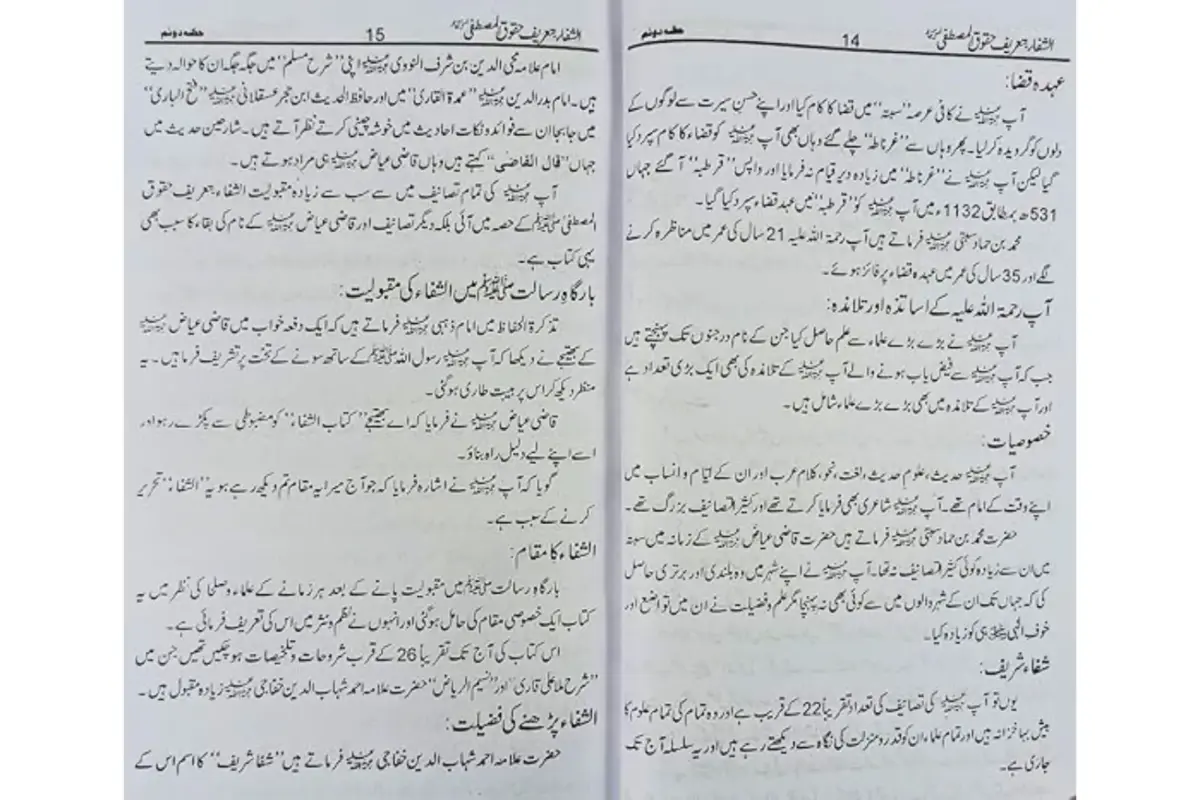 الشفاء بتعریف حقوق المصطفیٰ ﷺ 14 حصہ دوئم
عہدہ قضا:
آپ رحمۃ اللہ علیہ نے کافی عرصہ ”سبتہ“ میں قضا کا کام کیا اور اپنے حسنِ سیرت سے لوگوں کے
دلوں کو گرویدہ کر لیا۔ پھر وہاں سے ”غرناطہ“ چلے گئے وہاں بھی آپ رحمۃ اللہ علیہ کو قضاء کا کام سپرد کیا
گیا لیکن آپ رحمۃ اللہ علیہ نے ”غرناطہ“ میں زیادہ دیر قیام نہ فرمایا اور واپس ”قرطبہ“ آ گئے جہاں
531ھ بمطابق 1132ء میں آپ رحمۃ اللہ علیہ کو ”قرطبہ“ میں عہد قضاء سپرد کیا گیا۔
محمد بن حماد سبتی رحمۃ اللہ علیہ فرماتے ہیں آپ رحمۃ اللہ علیہ 21 سال کی عمر میں مناظرہ کرنے
لگے اور 35 سال کی عمر میں عہدہ قضاء پر فائز ہوئے۔
آپ رحمۃ اللہ علیہ کے اساتذہ اور تلامذہ:
آپ رحمۃ اللہ علیہ نے بڑے بڑے علماء سے علم حاصل کیا جن کے نام درجنوں تک پہنچتے ہیں
جب کہ آپ رحمۃ اللہ علیہ سے فیض یاب ہونے والے آپ رحمۃ اللہ علیہ کے تلامذہ کی بھی ایک بڑی تعداد ہے
اور آپ رحمۃ اللہ علیہ کے تلامذہ میں بھی بڑے بڑے علماء شامل ہیں۔
خصوصیات:
آپ رحمۃ اللہ علیہ حدیث، علوم حدیث، لغت، نحو، کلام عرب اور ان کے ایام و انساب میں
اپنے وقت کے امام تھے۔ آپ رحمۃ اللہ علیہ شاعری بھی فرمایا کرتے تھے اور کثیر التصانیف بزرگ تھے۔
حضرت محمد بن حماد سبتی رحمۃ اللہ علیہ فرماتے ہیں حضرت قاضی عیاض رحمۃ اللہ علیہ کے زمانہ میں سبتہ
میں ان سے زیادہ کوئی کثیر التصانیف نہ تھا۔ آپ رحمۃ اللہ علیہ نے اپنے شہر میں وہ بلندی اور برتری حاصل
کی کہ جہاں تک ان کے شہر والوں میں سے کوئی بھی نہ پہنچا مگر علم و فضیلت نے ان میں تواضع اور
خوف الٰہی ہی کو زیادہ کیا۔
شفاء شریف:
یوں تو آپ رحمۃ اللہ علیہ کی تصانیف کی تعداد تقریباً 22 کے قریب ہے اور وہ تمام کی تمام علوم کا
بیش بہا خزانہ ہیں اور تمام علماء ان کو قدر و منزلت کی نگاہ سے دیکھتے رہے ہیں اور یہ سلسلہ آج تک
جاری ہے۔
الشفاء بتعریف حقوق المصطفیٰ ﷺ 15 حصہ دوئم
امام علامہ محی الدین بن شرف النووی رحمۃ اللہ علیہ اپنی ”شرح مسلم“ میں جگہ جگہ ان کا حوالہ دیتے
ہیں۔ امام بدر الدین رحمۃ اللہ علیہ ”عمدۃ القاری“ میں اور حافظ الحدیث ابن حجر عسقلانی رحمۃ اللہ علیہ ”فتح الباری“
میں جا بجا ان سے فوائد و نکات احادیث میں خوشہ چینی کرتے نظر آتے ہیں۔ شارحین حدیث میں
جہاں ”قال القاضی“ کہتے ہیں وہاں قاضی عیاض رحمۃ اللہ علیہ ہی مراد ہوتے ہیں۔
آپ رحمۃ اللہ علیہ کی تمام تصانیف میں سے سب سے زیادہ مقبولیت الشفاء بتعریف حقوق
المصطفیٰ ﷺ کے حصہ میں آئی بلکہ دیگر تصانیف اور قاضی عیاض رحمۃ اللہ علیہ کے نام کی بقاء کا سبب بھی
یہی کتاب ہے۔
بارگاہِ رسالت ﷺ میں الشفاء کی مقبولیت:
تذکرۃ الحفاظ میں امام ذہبی رحمۃ اللہ علیہ فرماتے ہیں کہ ایک دفعہ خواب میں قاضی عیاض رحمۃ اللہ علیہ
کے بھتیجے نے دیکھا کہ آپ رحمۃ اللہ علیہ رسول اللہ ﷺ کے ساتھ سونے کے تخت پر تشریف فرما ہیں۔ یہ
منظر دیکھ کر اس پر ہیبت طاری ہو گئی۔
قاضی عیاض رحمۃ اللہ علیہ نے فرمایا کہ اے بھتیجے ”کتاب الشفاء“ کو مضبوطی سے پکڑے رہو اور
اسے اپنے لیے دلیل راہ بناؤ۔
گویا کہ آپ رحمۃ اللہ علیہ نے اشارہ فرمایا کہ جو آج میرا یہ مقام تم دیکھ رہے ہو یہ ”الشفاء“ تحریر
کرنے کے سبب ہے۔
الشفاء کا مقام:
بارگاہِ رسالت ﷺ میں مقبولیت پانے کے بعد ہر زمانے کے علماء و صلحا کی نظر میں یہ
کتاب ایک خصوصی مقام کی حامل ہو گئی اور انہوں نے نظم و نثر میں اس کی تعریف فرمائی ہے۔
اس کتاب کی آج تک تقریباً 26 کے قریب شروحات و تلخیصات ہو چکیں تھیں جن میں
”شرح ملا علی قاری“ اور ”نسیم الریاض“ حضرت علامہ احمد شہاب الدین خفاجی رحمۃ اللہ علیہ زیادہ مقبول ہیں۔
الشفاء پڑھنے کی فضیلت:
حضرت علامہ احمد شہاب الدین خفاجی رحمۃ اللہ علیہ فرماتے ہیں ”شفا شریف“ کا اسم اس کے